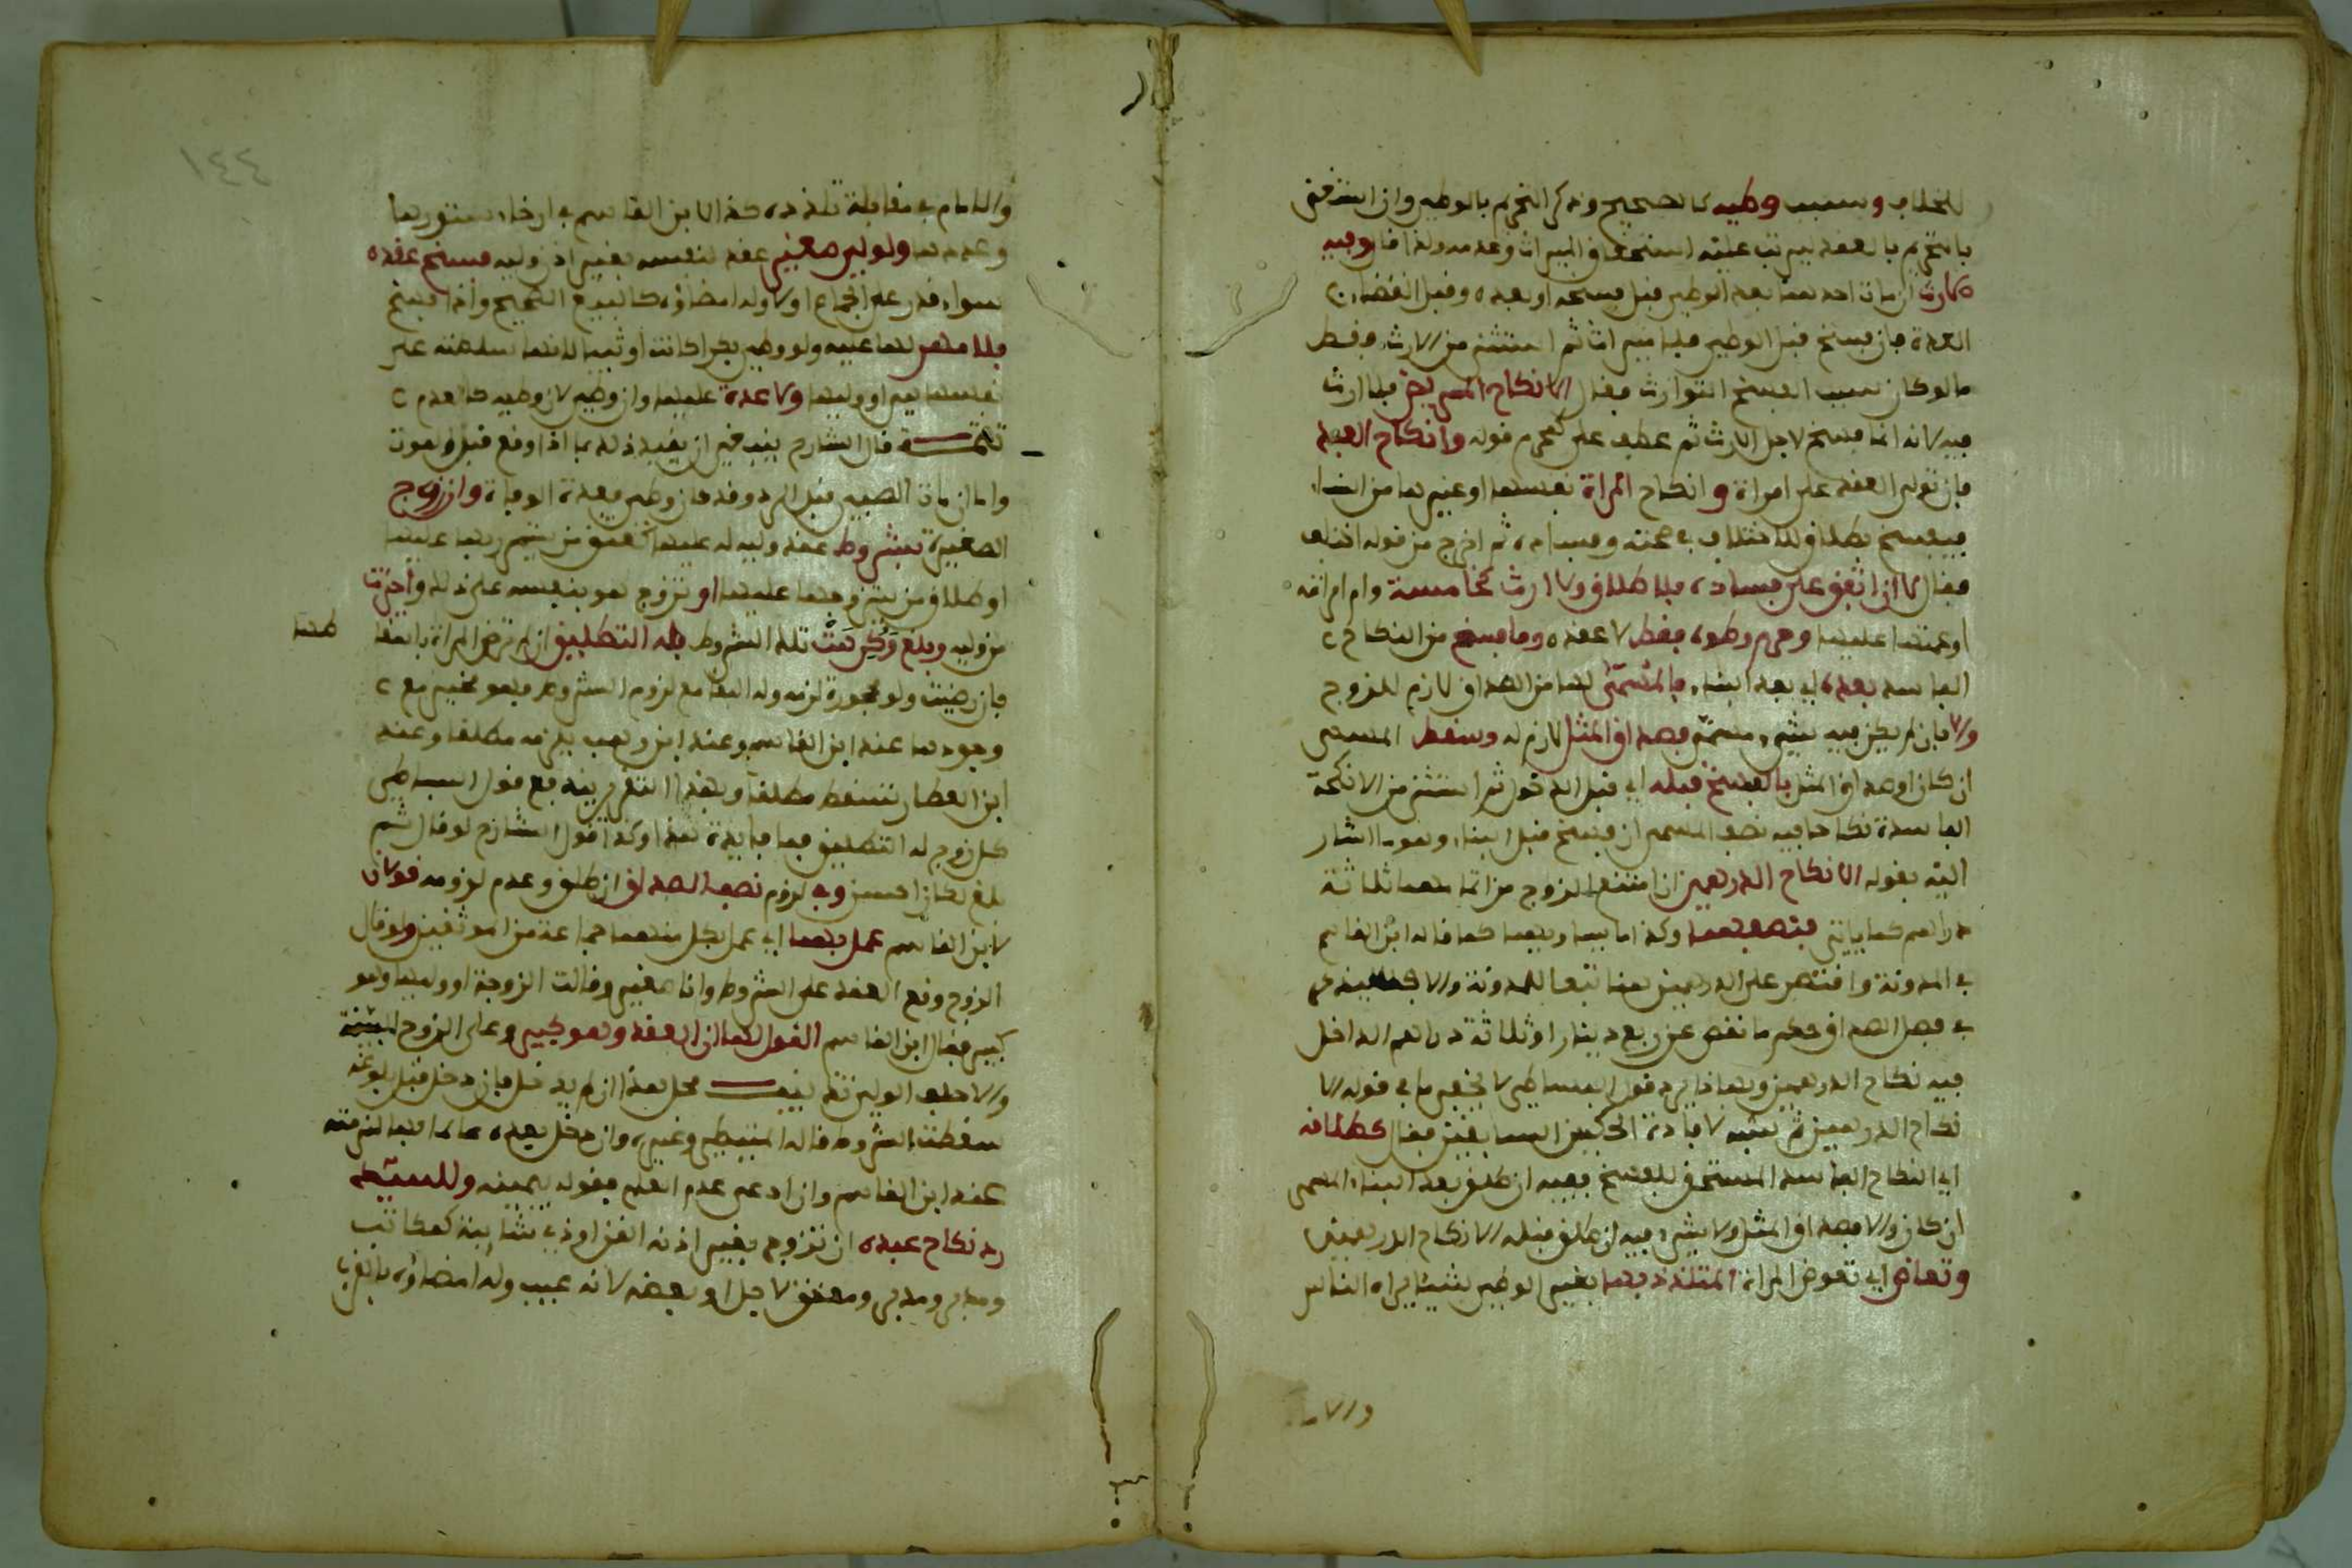 للخلاف وسبب وطيه كالصحيح وذكر التحريم بالوطي وان اشترك في
بالتحريم بالعقد ليرتب عليه استحقاق الميراث وعدمه ولذا قال وفيه
كارث ان مات احدهما بعد الوطي قبل فسخه او بعده وقبل انقضاء
العدة فان فسخ قبل الوطي فلا ميراث ثم استثنى من الارث فقط
ما لو كان سبب الفسخ التوارث فقال الا نكاح المريض فلا ارث
فيه لانه انما فسخ لاجل الارث ثم عطف على كمحرم قوله وانكاح العبد
فان تولى العقد على امراة وانكاح المراة نفسها او غيرها من النساء
فيفسخ بطلاق للاختلاف في صحته وفساده ثم اخرج من قوله اختلف
فقال لا ان اتفق على فساده فلا طلاق ولا ارث كخامسة وام امراته
او عمتها عليها وحرم وطؤه فقط لا عقده وما فسخ من النكاح
الفاسد بعده اي بعد البناء فالمسمى لها من الصداق لازم للزوج
والا فان لم يكن فيه شيء مسمى فصداق المثل لازم له وسقط المسمى
ان كان او صداق المثل بالفسخ قبله اي قبل الدخول ثم استثنى من الانكحة
الفاسدة نكاحا فيه نصف المسمى ان فسخ قبل البناء وهو ما اشار
اليه بقوله الا نكاح الدرهمين ان امتنع الزوج من اتمامهما ثلاثة
دراهم كما ياتي فنصفهما وكذا ما يساويهما كما قاله ابن القاسم
في المدونة واقتصر على الدرهمين هنا تبعا للمدونة والا
في فصل الصداق حكم ما نقص عن ربع دينار او ثلاثة دراهم الداخل
فيه نكاح الدرهمين وبهذا يرد قول البساطي لا يخفى ما في قوله الا
نكاح الدرهمين ثم شبه لافادة الحكمين السابقين فقال كطلاقه
اي النكاح الفاسد المستحق للفسخ ففيه ان طلق بعد البناء المسمى
ان كان والا فصداق المثل ولا شيء فيه ان طلق قبله الا نكاح الدرهمين
وتعاض اي تعوض المراة المتلذذ بها بغير الوطي شيئا يراه الناس
والا
١٤٤
والامام في مقابلة تلذذه كذا لابن القاسم في ارخاء ستورها
وعدمها ولولي صغير عقد لنفسه بغير اذن وليه فسخ عقده
سواء قدر على الجماع او لا وله امضاؤه كالبيع الصحيح واذا فسخ
فلا مهر لها عليه ولو وطي بكرا كانت او ثيبا لانها سلطته على
نفسها هي او وليها ولا عدة عليها وان وطي لان وطيه كالعدم
تتمة قال الشارح ينبغي ان يقيد ذلك بما اذا وقع قبل الموت
واما ان مات الصبي قبل الرد وقد كان وطي فعدة الوفاة وان زوج
الصغير بشروط عقد وليه له عليها كعتق من يتسرى بها عليها
او طلاق من يتزوجها عليها او تزوج هو بنفسه على ذلك واجيزت
من وليه وبلغ وكره هت تلك الشروط فله التطليق ان لم ترض المراة باسقاطها
فان رضيت ولو محجورة لزمه وله البقا مع لزوم الشروط فهو مخير مع
وجودها عند ابن القاسم وعند ابن وهب يلزمه مطلقا وعند
ابن العطار تسقط مطلقا وبهذا التقرير يندفع قول البساطي
كل زوج له التطليق فما فايدة هذا وكذا قول الشارح لو قال ثم
بلغ لكان احسن وفي لزوم نصف الصداق ان طلق وعدم لزومه قولان
لابن القاسم عمل بهما اي عمل بكل منهما جماعة من الموثقين ولو قال
الزوج وقع العقد على الشروط وانا صغير وقالت الزوجة او وليها وهو
كبير فقال ابن القاسم القول لها ان العقد وهو كبير وعلى الزوج البينة
والا حلف الولي تنبيه محل هذا ان لم يدخل فان دخل قبل بلوغه
سقطت الشروط قاله المتيطي وغيره وان دخل بعده عالما بها لزمته
عند ابن القاسم وان ادعى عدم العلم فقوله بيمينه وللسيد
رد نكاح عبده ان تزوج بغير اذنه القن او ذي شائبة كمكاتب
ومدبر ومعتق لاجل او بعضه لانه عيب وله امضاؤه بالقرب